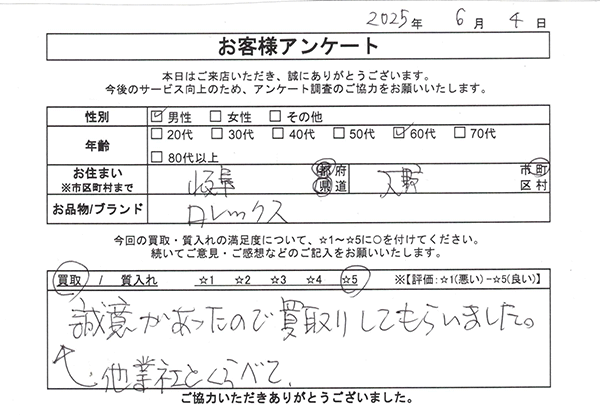 2025年 6月 4日
お客様アンケート
本日はご来店いただき、誠にありがとうございます。
今後のサービス向上のため、アンケート調査のご協力をお願いいたします。
性別 ☑男性 □女性 □その他
年齢 □20代 □30代 □40代 □50代 ☑60代 □70代
□80代以上
お住まい ※市区町村まで 岐阜 都府県道 市町区村
お品物/ブランド ロレックス
今回の買取・質入れの満足度について、☆1～☆5に○を付けてください。
続いてご意見・ご感想などのご記入をお願いいたします。
買取 / 質入れ ☆1 ☆2 ☆3 ☆4 ☆5 ※【評価:☆1(悪い)-☆5(良い)】
誠意があったので買取りしてもらいました。
他業社とくらべて、
ご協力いただきありがとうございました。